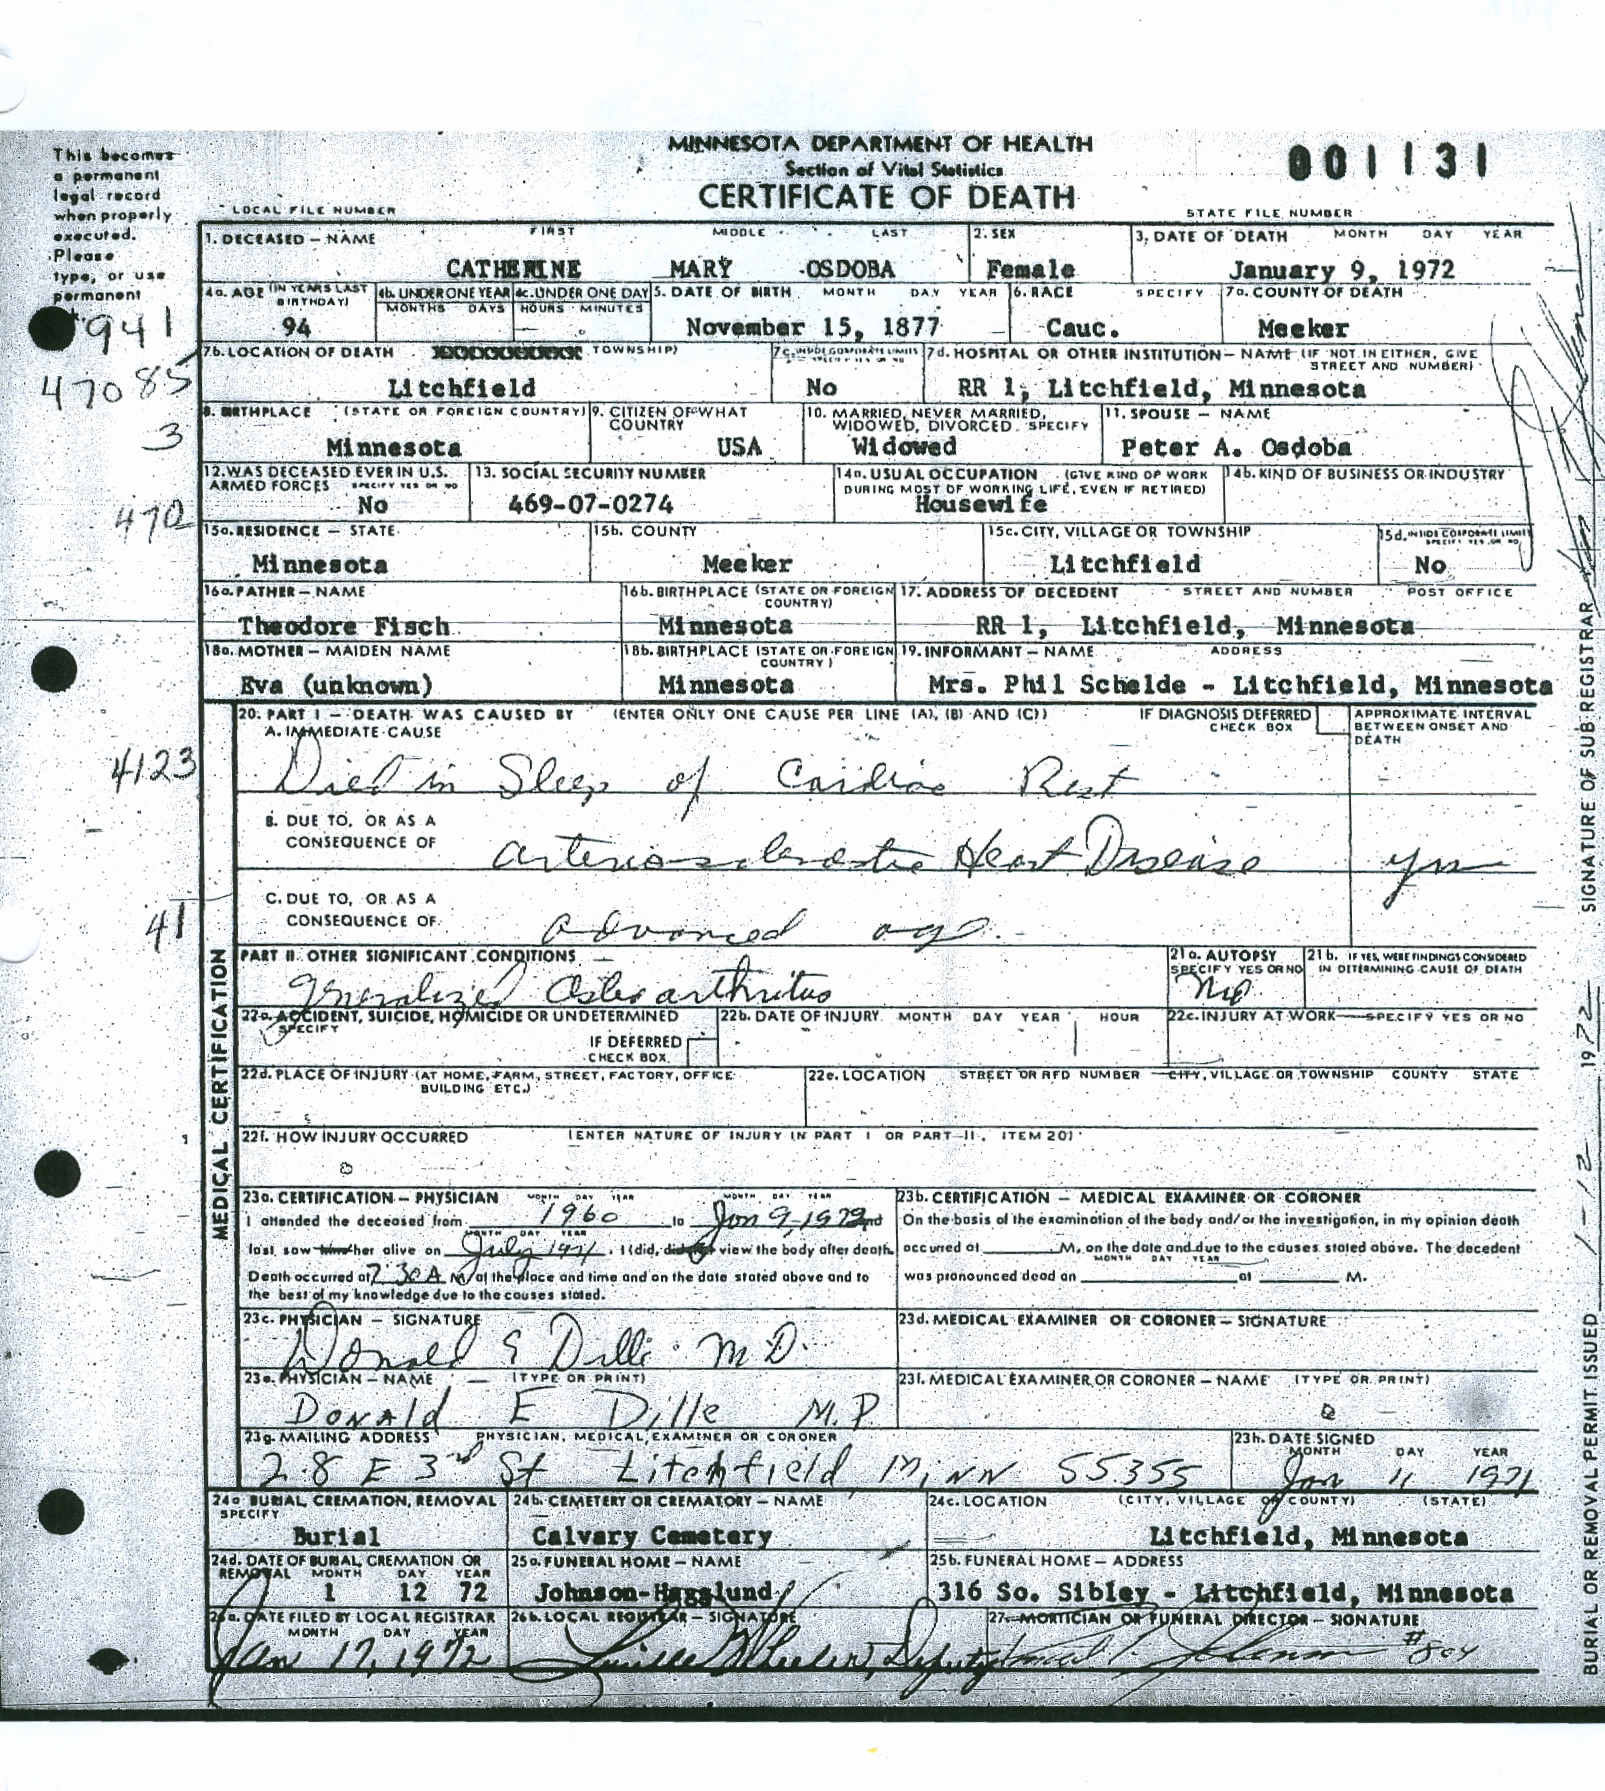 MINNESOTA DEPARTMENT OF HEALTH
Section of Vital Statistics
CERTIFICATE OF DEATH
001131
This becomes
a permanent
legal record
when properly
executed.
Please
type, or use
permanent
LOCAL FILE NUMBER
STATE FILE NUMBER
1. DECEASED — NAME FIRST MIDDLE LAST 2. SEX 3. DATE OF DEATH MONTH DAY YEAR
CATHERINE MARY OSDOBA Female January 9, 1972
4a. AGE (IN YEARS LAST BIRTHDAY) 4b. UNDER ONE YEAR MONTHS DAYS 4c. UNDER ONE DAY HOURS MINUTES 5. DATE OF BIRTH MONTH DAY YEAR 6. RACE SPECIFY 7a. COUNTY OF DEATH
941
94 — — November 15, 1877 Cauc. Meeker
7b. LOCATION OF DEATH TOWNSHIP) 7c. INSIDE CORPORATE LIMITS SPECIFY YES OR NO 7d. HOSPITAL OR OTHER INSTITUTION — NAME (IF NOT IN EITHER, GIVE STREET AND NUMBER)
47085
Litchfield No RR 1, Litchfield, Minnesota
8. BIRTHPLACE (STATE OR FOREIGN COUNTRY) 9. CITIZEN OF WHAT COUNTRY 10. MARRIED, NEVER MARRIED, WIDOWED, DIVORCED SPECIFY 11. SPOUSE — NAME
3
Minnesota USA Widowed Peter A. Osdoba
12. WAS DECEASED EVER IN U.S. ARMED FORCES SPECIFY YES OR NO 13. SOCIAL SECURITY NUMBER 14a. USUAL OCCUPATION (GIVE KIND OF WORK DURING MOST OF WORKING LIFE, EVEN IF RETIRED) 14b. KIND OF BUSINESS OR INDUSTRY
470
No 469-07-0274 Housewife
15a. RESIDENCE — STATE 15b. COUNTY 15c. CITY, VILLAGE OR TOWNSHIP 15d. INSIDE CORPORATE LIMITS SPECIFY YES OR NO
Minnesota Meeker Litchfield No
16a. FATHER — NAME 16b. BIRTHPLACE (STATE OR FOREIGN COUNTRY) 17. ADDRESS OF DECEDENT STREET AND NUMBER POST OFFICE
Theodore Fisch Minnesota RR 1, Litchfield, Minnesota
18a. MOTHER — MAIDEN NAME 18b. BIRTHPLACE (STATE OR FOREIGN COUNTRY) 19. INFORMANT — NAME ADDRESS
Eva (unknown) Minnesota Mrs. Phil Schelde - Litchfield, Minnesota
MEDICAL CERTIFICATION
20. PART I — DEATH WAS CAUSED BY (ENTER ONLY ONE CAUSE PER LINE (A), (B) AND (C)) IF DIAGNOSIS DEFERRED CHECK BOX APPROXIMATE INTERVAL BETWEEN ONSET AND DEATH
A. IMMEDIATE CAUSE
4123
Died in Sleep of Cardiac Rest
B. DUE TO, OR AS A
CONSEQUENCE OF
Arteriosclerotic Heart Disease yrs
C. DUE TO, OR AS A
CONSEQUENCE OF
41
advanced age.
PART II. OTHER SIGNIFICANT CONDITIONS 21a. AUTOPSY SPECIFY YES OR NO 21b. IF YES, WERE FINDINGS CONSIDERED IN DETERMINING CAUSE OF DEATH
generalized Osteoarthritus No
22a. ACCIDENT, SUICIDE, HOMICIDE OR UNDETERMINED SPECIFY 22b. DATE OF INJURY MONTH DAY YEAR HOUR 22c. INJURY AT WORK — SPECIFY YES OR NO
IF DEFERRED
CHECK BOX
22d. PLACE OF INJURY (AT HOME, FARM, STREET, FACTORY, OFFICE BUILDING ETC.) 22e. LOCATION STREET OR RFD NUMBER CITY, VILLAGE OR TOWNSHIP COUNTY STATE
22f. HOW INJURY OCCURRED (ENTER NATURE OF INJURY IN PART I OR PART II, ITEM 20)
23a. CERTIFICATION — PHYSICIAN MONTH DAY YEAR MONTH DAY YEAR
I attended the deceased from 1960 to Jan 9-1972 and
MONTH DAY YEAR
last saw him/her alive on July 1971. I (did, did not) view the body after death.
Death occurred at 7:30A M. at the place and time and on the date stated above and to
the best of my knowledge due to the causes stated.
23b. CERTIFICATION — MEDICAL EXAMINER OR CORONER
On the basis of the examination of the body and/or the investigation, in my opinion death
occurred at M. on the date and due to the causes stated above. The decedent
MONTH DAY YEAR
was pronounced dead on at M.
23c. PHYSICIAN — SIGNATURE 23d. MEDICAL EXAMINER OR CORONER — SIGNATURE
Donald E Dille M D.
23e. PHYSICIAN — NAME (TYPE OR PRINT) 23f. MEDICAL EXAMINER OR CORONER — NAME (TYPE OR PRINT)
Donald E Dille M.D.
23g. MAILING ADDRESS PHYSICIAN, MEDICAL EXAMINER OR CORONER 23h. DATE SIGNED MONTH DAY YEAR
28 E 3rd St Litchfield Minn 55355 Jan 11 1971
24a. BURIAL, CREMATION, REMOVAL SPECIFY 24b. CEMETERY OR CREMATORY — NAME 24c. LOCATION (CITY, VILLAGE OR COUNTY) (STATE)
Burial Calvary Cemetery Litchfield, Minnesota
24d. DATE OF BURIAL, CREMATION OR REMOVAL MONTH DAY YEAR 25a. FUNERAL HOME — NAME 25b. FUNERAL HOME — ADDRESS
1 12 72 Johnson-Hagglund 316 So. Sibley - Litchfield, Minnesota
26a. DATE FILED BY LOCAL REGISTRAR MONTH DAY YEAR 26b. LOCAL REGISTRAR — SIGNATURE 27. MORTICIAN OR FUNERAL DIRECTOR — SIGNATURE
Jan 17, 1972 Deputy #804
BURIAL OR REMOVAL PERMIT ISSUED 1-12 1972 SIGNATURE OF SUB-REGISTRAR